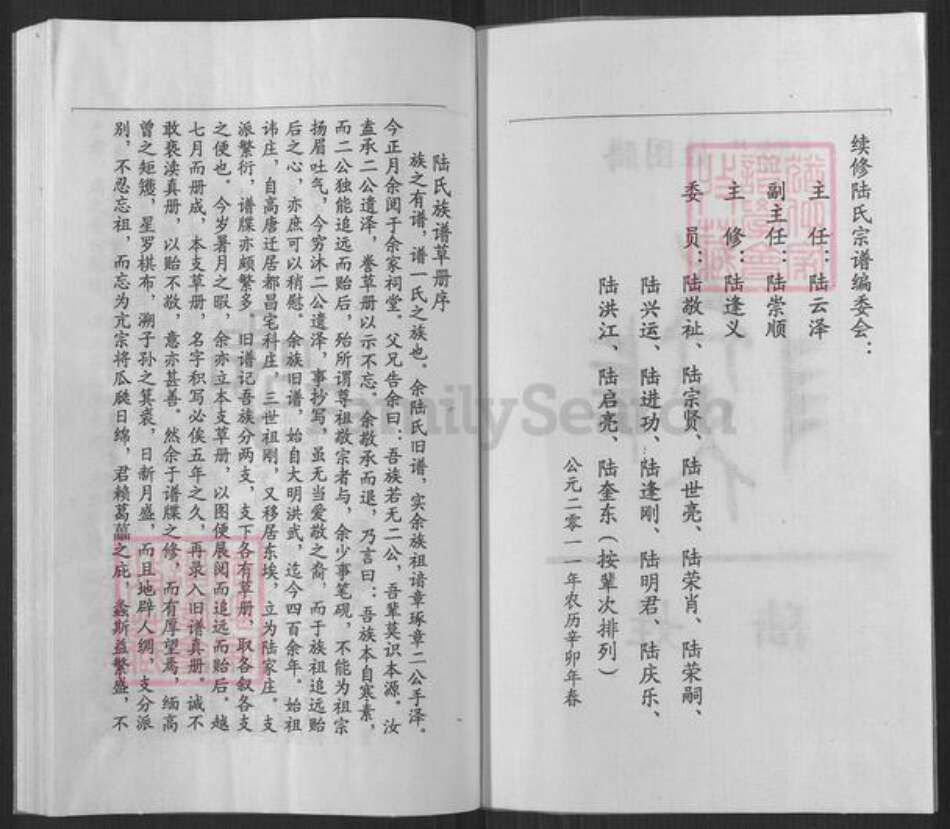 续修陆氏宗谱编委会：
主　任：陆云泽
副主任：陆崇顺
主　修：陆逢义
委　员：陆敬祉、陆宗贤、陆世亮、陆荣肖、陆荣嗣、
陆兴运、陆进功、陆逢刚、陆明君、陆庆乐、
陆洪江、陆启亮、陆奎东（按辈次排列）
公元二零一一年农历辛卯年春
陆氏族谱草册序
族之有谱，谱一氏之族也。余陆氏旧谱，实余族祖谙章琢章二公手泽。
今正月余阅于余家祠堂。父兄告余曰：吾族若无二公，吾辈莫识本源。汝
盍承二公遗泽，誊草册以示不忘。余敬承而退，乃言曰：吾族本自寒素，
而二公独能追远而贻后，殆所谓尊祖敬宗者与，余少事笔砚，不能为祖宗
扬眉吐气，今穷沐二公遗泽，事抄写，虽无当爱敬之裔，而于族祖追远贻
后之心，亦庶可以稍慰。余族旧谱，始自大明洪武，迄今四百余年。始祖
讳庄，自高唐迁居都昌宅科庄，三世祖刚，又移居东埃，立为陆家庄。支
派繁衍，谱牒亦颇繁多　旧谱记吾族分两支，支下各有草册，取各叙各支
之便也。今岁暑月之暇，余亦立本支草册，以图便展阅而追远而贻后。越
七月而册成，本支草册，名字积写必俟五年之久，再录入旧谱真册。诚不
敢亵渎真册，以贻不敬，意亦甚善。然余于谱牒之修，而有厚望焉，缅高
曾之矩矱，星罗棋布，溯子孙之箕裘，日新月盛，而且地辟人绸，支分派
别，不忍忘祖，而忘为亢宗将瓜瓞日绵，君赖葛藟之庇，螽斯益繁盛，不
FamilySearch